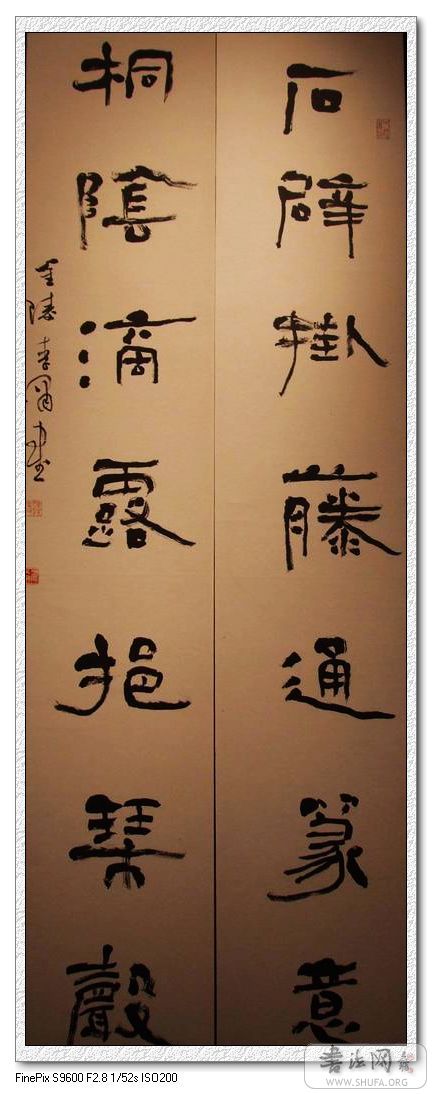 石壁掛藤通篆意
桐陰滴露挹琴聲
金陵李嘯書
书法网
WWW.SHUFA.ORG
FinePix S9600 F2.8 1/52s ISO200